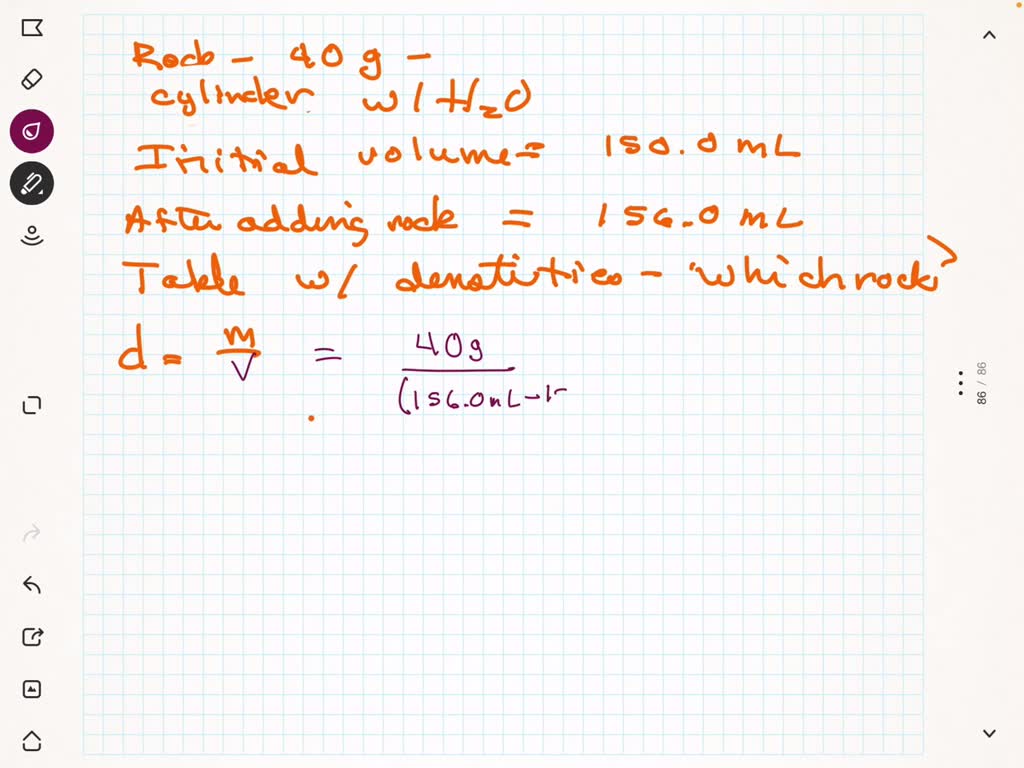 Rock - 40 g -
cylinder w/ H₂O
Initial volume = 150.0 mL
After adding rock = 156.0 mL
Table w/ denstities - which rock?
d = m/V = 40g/(156.0mL-1
86 / 86